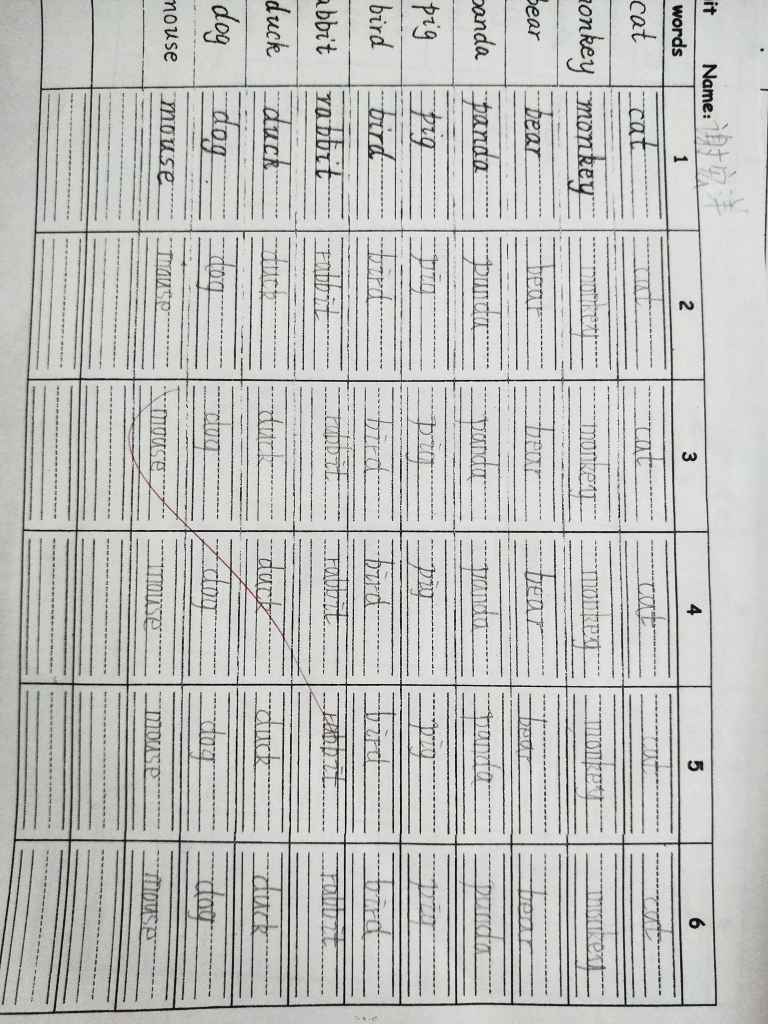 it Name: 谢
words 1 2 3 4 5 6
cat cat cat cat cat cat cat
monkey monkey monkey monkey monkey monkey monkey
bear bear bear bear bear bear bear
panda panda panda panda panda panda panda
pig pig pig pig pig pig pig
bird bird bird bird bird bird bird
rabbit rabbit rabbit rabbit rabbit rabbit rabbit
duck duck duck duck duck duck duck
dog dog dog dog dog dog dog
mouse mouse mouse mouse mouse mouse mouse